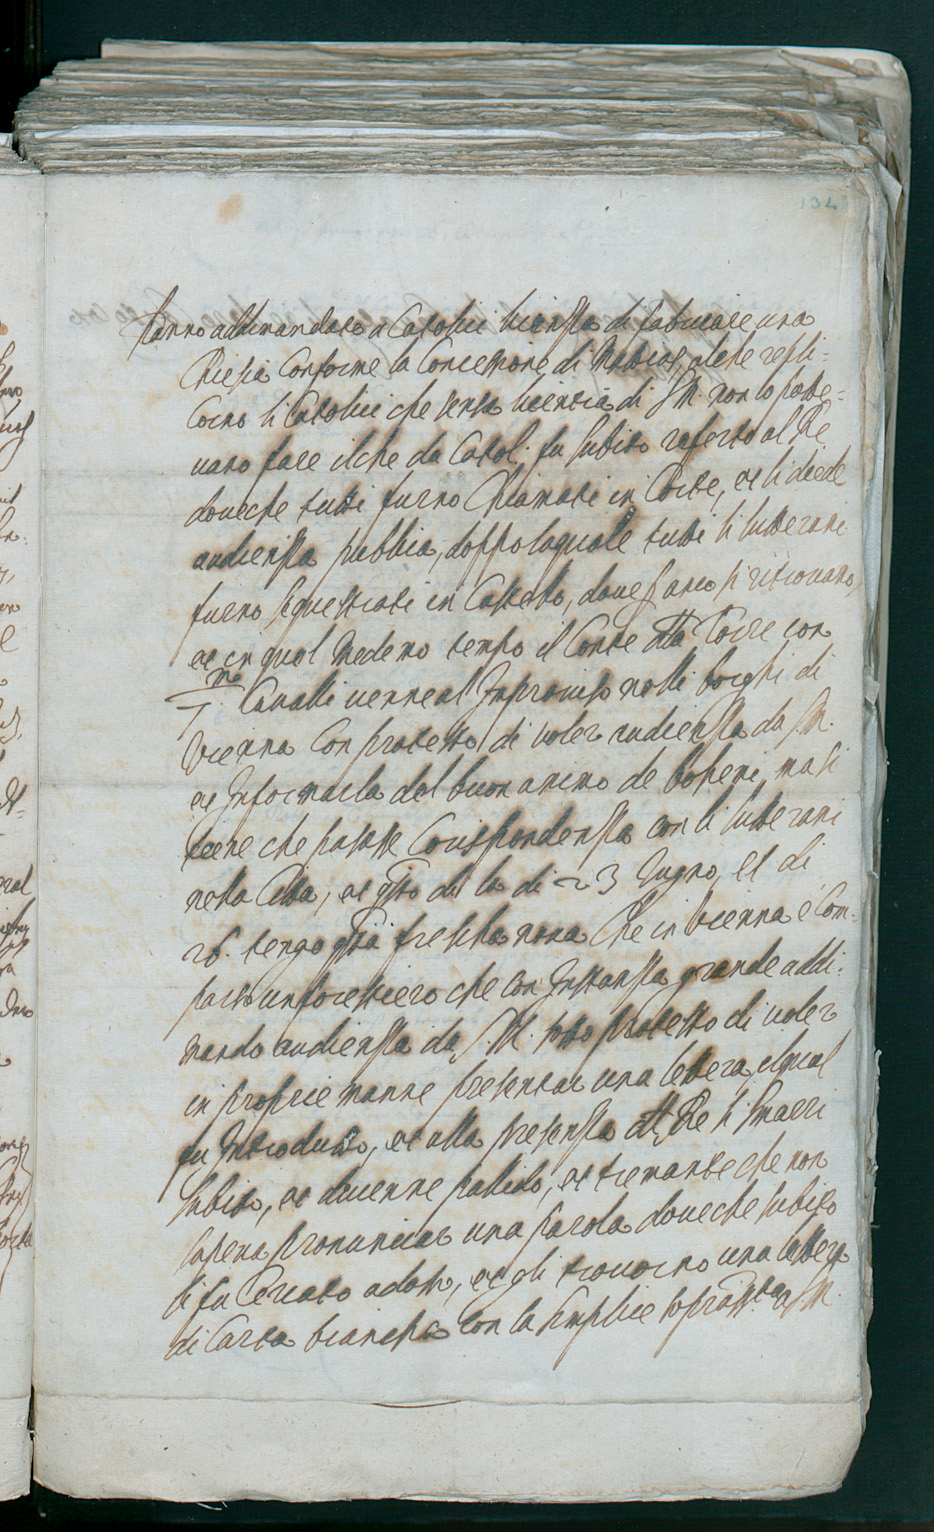 134
hanno addimandato a Catolici licenza di fabricare una
Chiesa conforme la Concessione di Mattias, al che repli=
corno li Catolici che senza licenza di S.M. non lo pote=
vano fare il che da Catol.ci fu subito referto al Re
doveche tutti furno Chiamati in Corte, et li diede
audienza publica, doppo la quale tutti li lutterani
furno sequestrati in Castello, dove si ritrovano,
et in quel medemo tempo il Conte della Torre con
m/7 Cavalli venne al Improviso nelli borghi di
Vienna con protesto di voler audienza da S.M.
et Informarla del buon animo de bohemi, ma si
tiene che passasse Corrispondenza con li lutterani
nella Citta, et questo da li di 23 Giugno, et di
26. tengo questa frescha nova Che in Vienna è Com=
parso un forestiero che con Instanza grande addi=
mandò audienza da S.M. sotto protesto di voler
in proprie manne presentar una lettera, il qual
fu Introdutto, et alla presenza del Re si smarri
subito, et divenne pallido, et tremante che non
sapeva pronunciar una parola doveche subito
li fu Cercato adosso, et gli trovorno una lettera
di Carta biancha con la semplice soprascritta a S.M.